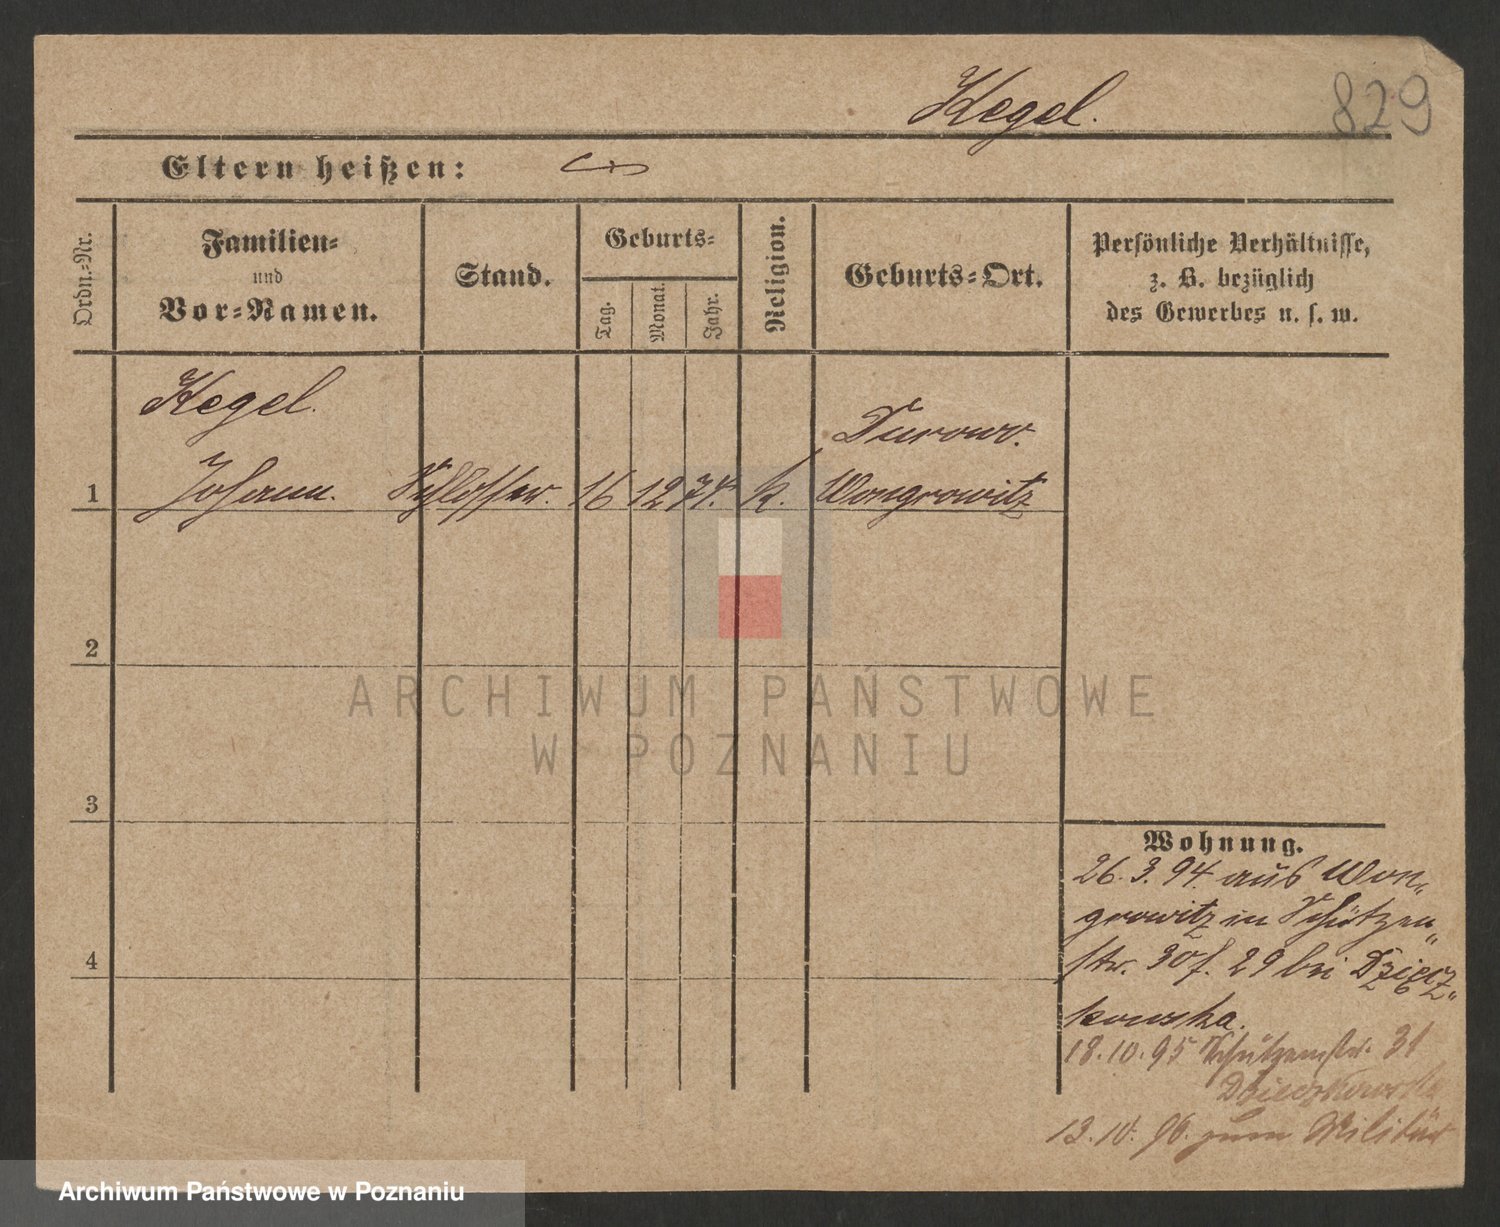 Kegel.
829
Eltern heißen:
Ordn.-Nr.
Familien-
und
Vor-Namen.
Stand.
Geburts-
Tag.
Monat.
Jahr.
Religion.
Geburts-Ort.
Persönliche Verhältnisse,
z. B. bezüglich
des Gewerbes u. s. w.
Kegel.
Durowo.
1 Johann. Schlosser. 16 12 74. k. Wongrowitz
2
ARCHIWUM PAŃSTWOWE
W POZNANIU
3
Wohnung.
26.3.94. aus Won„
growitz in Schützen„
str. 30 f. 29 bei Dzięcz„
kowska.
18.10.95 Schützenstr. 31
Dzieczkowska
13.10.96. zum Militär
4
Archiwum Państwowe w Poznaniu